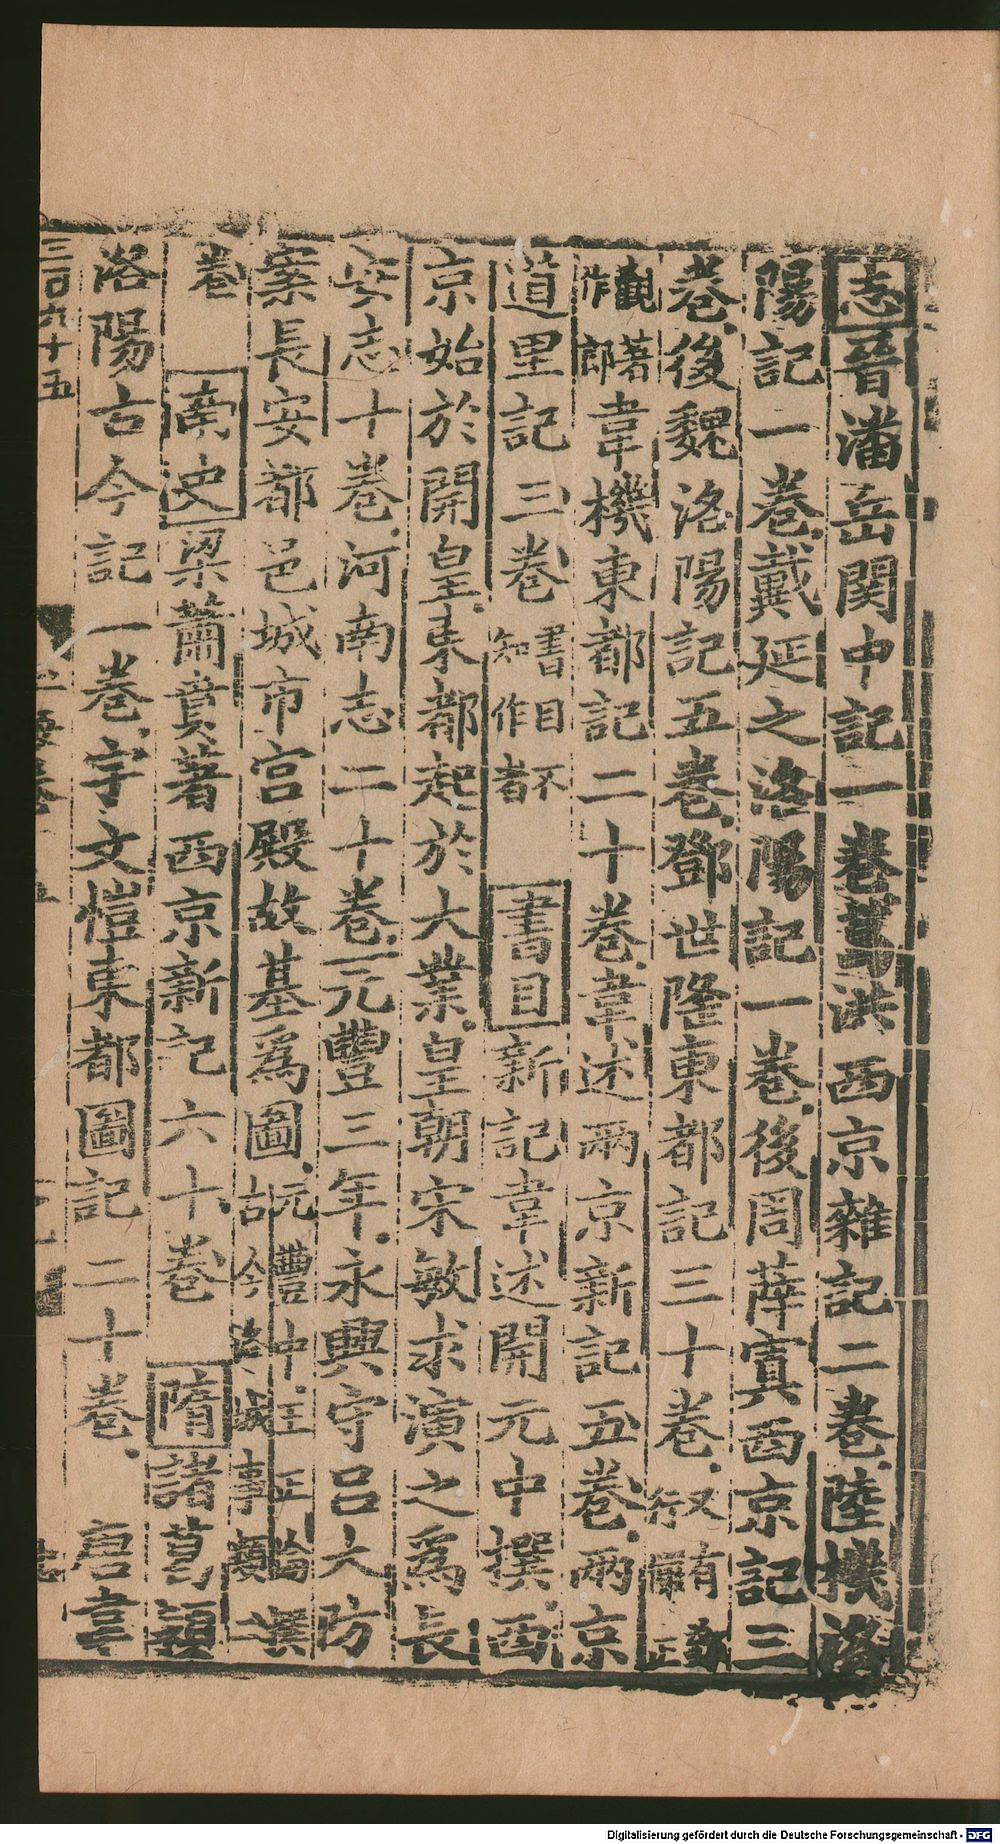 志晉潘岳関中記一卷葛洪西京雜記二卷陸機洛
陽記一卷戴延之洛陽記一卷後周薛寘西京記三
卷後魏洛陽記五卷鄧世隆東都記三十卷
觀著作郎韋機東都記二十卷韋述兩京新記五卷兩京
道里記三卷書目不知作者書目新記韋述開元中撰西
京始於開皇東都起於大業皇朝宋敏求演之爲長
安志十卷河南志二十卷元豐三年永興守呂大防
案長安都邑城市宮殿故基爲圖元豐中王正倫撰古今洛城事類二
卷南史梁蕭賁著西京新記六十卷隋諸葛潁
洛陽古今記一卷宇文愷東都圖記二十卷唐韋
三百九十五
Digitalisierung gefördert durch die Deutsche Forschungsgemeinschaft - DFG